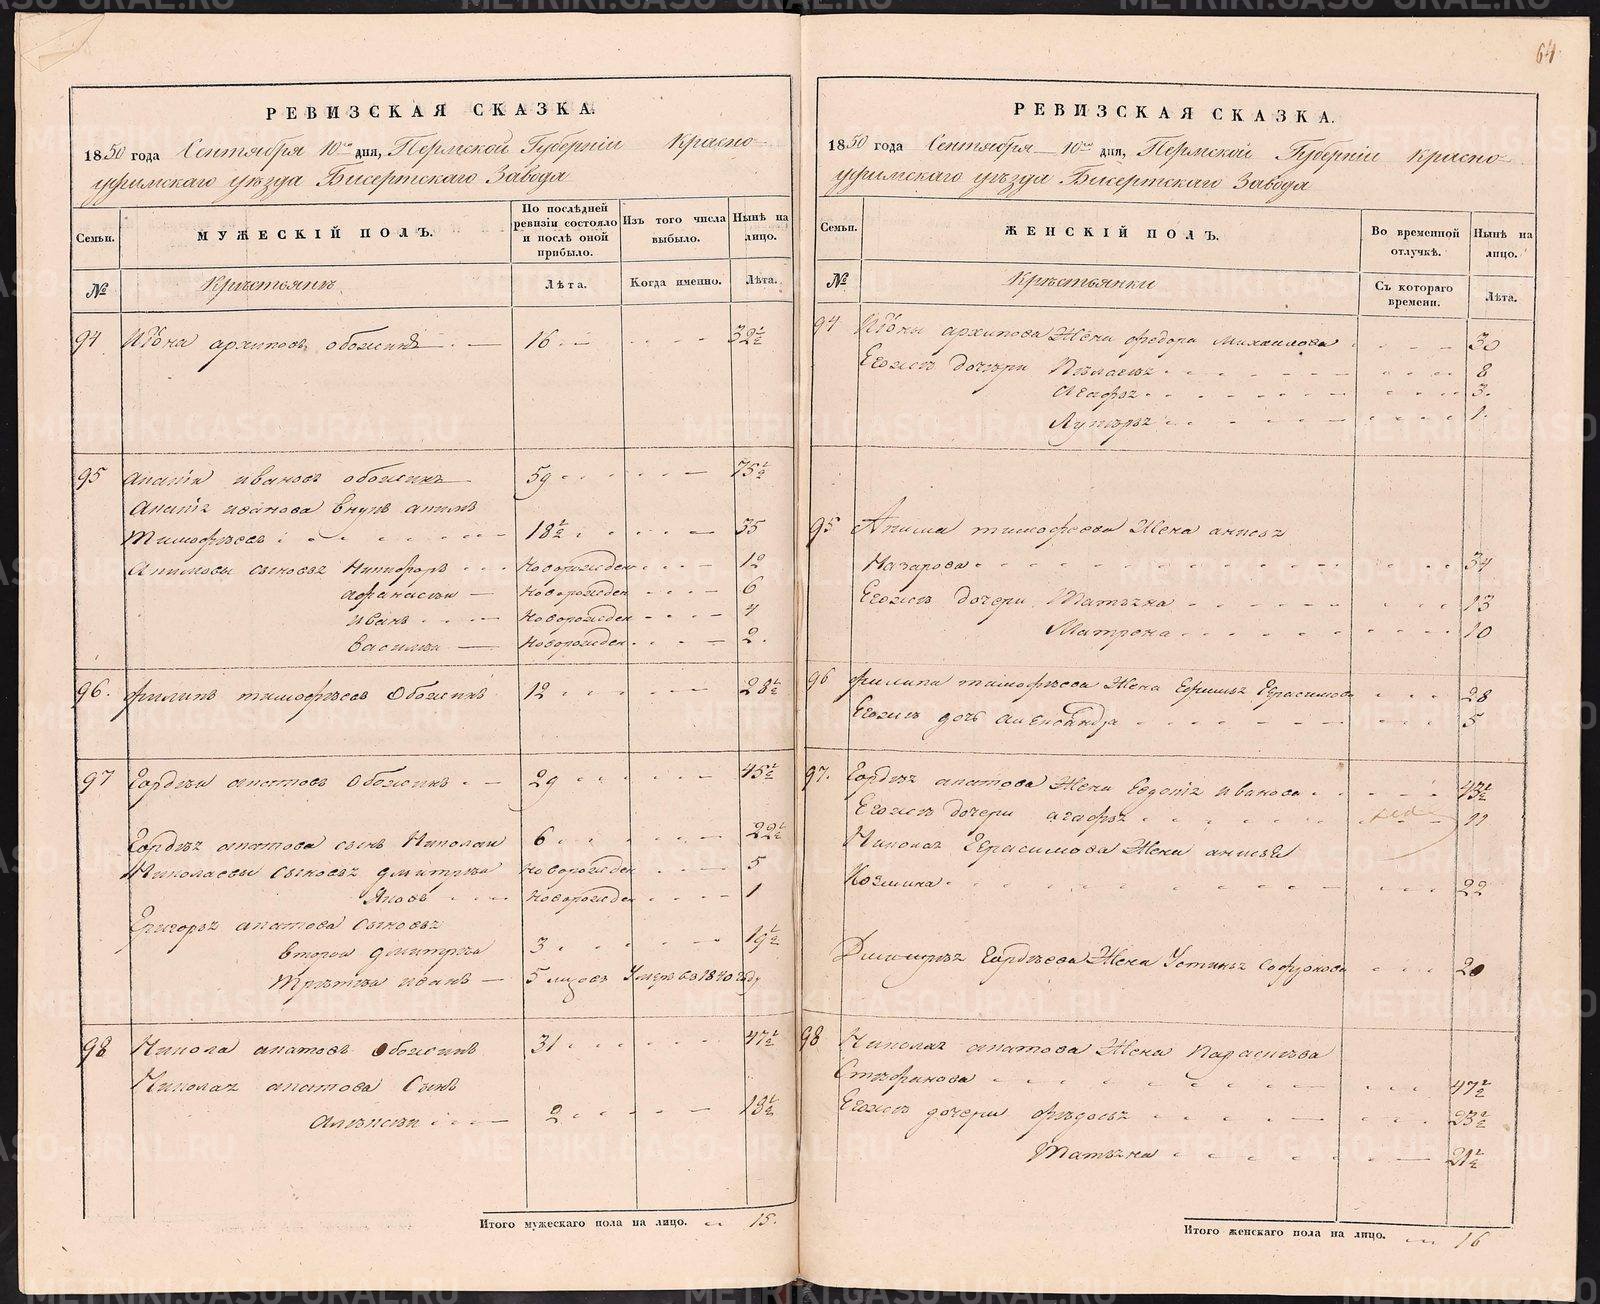 64
РЕВИЗСКАЯ СКАЗКА.
1850 года Сентября 10го дня, Пермской Губерніи Красно-
уфимскаго уѣзда Бисертскаго Завода
Семьи.
МУЖЕСКІЙ ПОЛЪ.
По послѣдней ревизіи состояло и послѣ оной прибыло.
Изъ того числа выбыло.
Нынѣ на лицо.
№
Крѣстьянѣ
Лѣта.
Когда именно.
Лѣта.
94 архиповъ обожинъ 16 32½
95 ананіи ивановъ обожинъ 59 75½
ананіа иванова внукъ
Тимофѣевъ 18½ 35
сыновьа Никифоръ Новорожден 12
афанасѣи Новорожден 6
иванъ Новорожден 4
василѣи Новорожден 2.
96. филипъ тимофѣевъ Обожинъ 12 28½
97 Гордѣи ипатовъ Обожинъ 29 45½
Гордѣа ипатова сынъ Николаи 6 22½
Николаевы сыновьа дмитрѣи Новорожден 5
Яковъ Новорожден 1
Григорьа ипатова сыновьа
второи дмитрѣи 3 19½
трѣтѣи иванъ 5 Умеръ въ 1840 году
98 Никола ипатовъ Обожинъ 31 47½
Николаа ипатова Сынъ
Алѣксѣи 2 18½
Итого мужескаго пола на лицо. 15.
РЕВИЗСКАЯ СКАЗКА.
1850 года Сентября 10го дня, Пермской Губерніи Красно-
уфимскаго уѣзда Бисертскаго Завода
Семьи.
ЖЕНСКІЙ ПОЛЪ.
Во временной отлучкѣ.
Нынѣ на лицо.
№
Крѣстьянки
Съ котораго времени.
Лѣта.
94 архипова Жена федора Михаилова 30
Егожъ дочѣри Пѣлагѣа 8
Агафьа 3.
1.
95 тимофѣева Жена анисьа
Назарова 34
Егожъ дочери Татьяна 13
Матрона 10
96 филипа тимофѣева Жена Герасимова 28
Егожъ дочь алѣксандра 5
97. Гордѣа ипатова Жена Евдокіа иванова 43½
Егожъ дочери агафьа 11
Николаа Герасимова Жена анисьа
Козмина 22
Дмитрѣа Гордѣева Жена Устиньа 20
98 Николаа ипатова Жена Параскѣва
Стѣфанова 47½
Егожъ дочери фѣдосьа 23½
Татьяна 21½
Итого женскаго пола на лицо. 16
METRIKI.GASO-URAL.RU